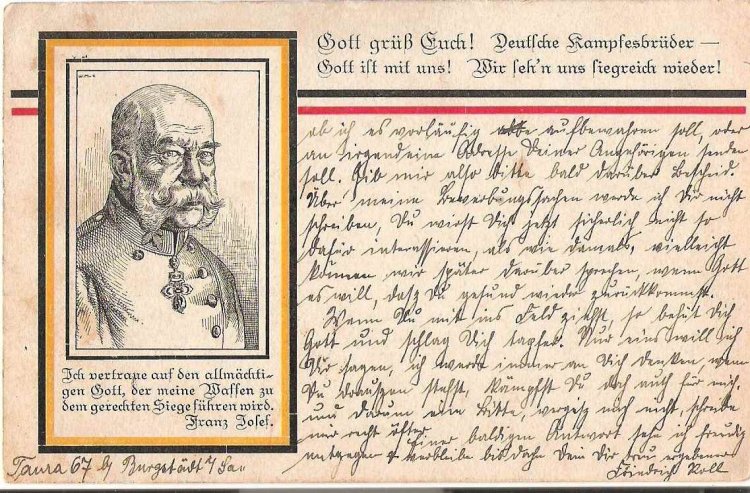 Gott grüß Euch! Deutsche Kampfesbrüder —
Gott ist mit uns! Wir seh'n uns siegreich wieder!
Ich vertraue auf den allmächti-
gen Gott, der meine Waffen zu
dem gerechten Siege führen wird.
Franz Josef.
ob ich es vorläufig aufbewahren soll, oder
an irgend eine Adresse Deiner Angehörigen senden
soll. Gib mir also bitte bald darüber Bescheid.
Über meine Bewerbungssachen werde ich Dir nicht
schreiben, Du wirst Dich jetzt sicherlich nicht so
dafür interessieren, als wie damals, vielleicht
können wir später darüber sprechen, wenn Gott
es will, dasz Du gesund wieder zurückkommst.
Wenn Du mit ins Feld ziehst, so behüt Dich
Gott und schlag Dich tapfer. Nur eins will ich
Dir sagen, ich werde immer an Dich denken, wenn
Du drauszen stehst, kämpfst Du doch auch für mich.
und darum eine Bitte, vergesz mich nicht, schreibe
mir recht öfter.
Einer baldigen Antwort sehe ich freudig
entgegen & verbleibe bis dahin Dein Dir treu ergebener
Friedrich Noll
Taura 67 b/ Burgstädt i/ Sa